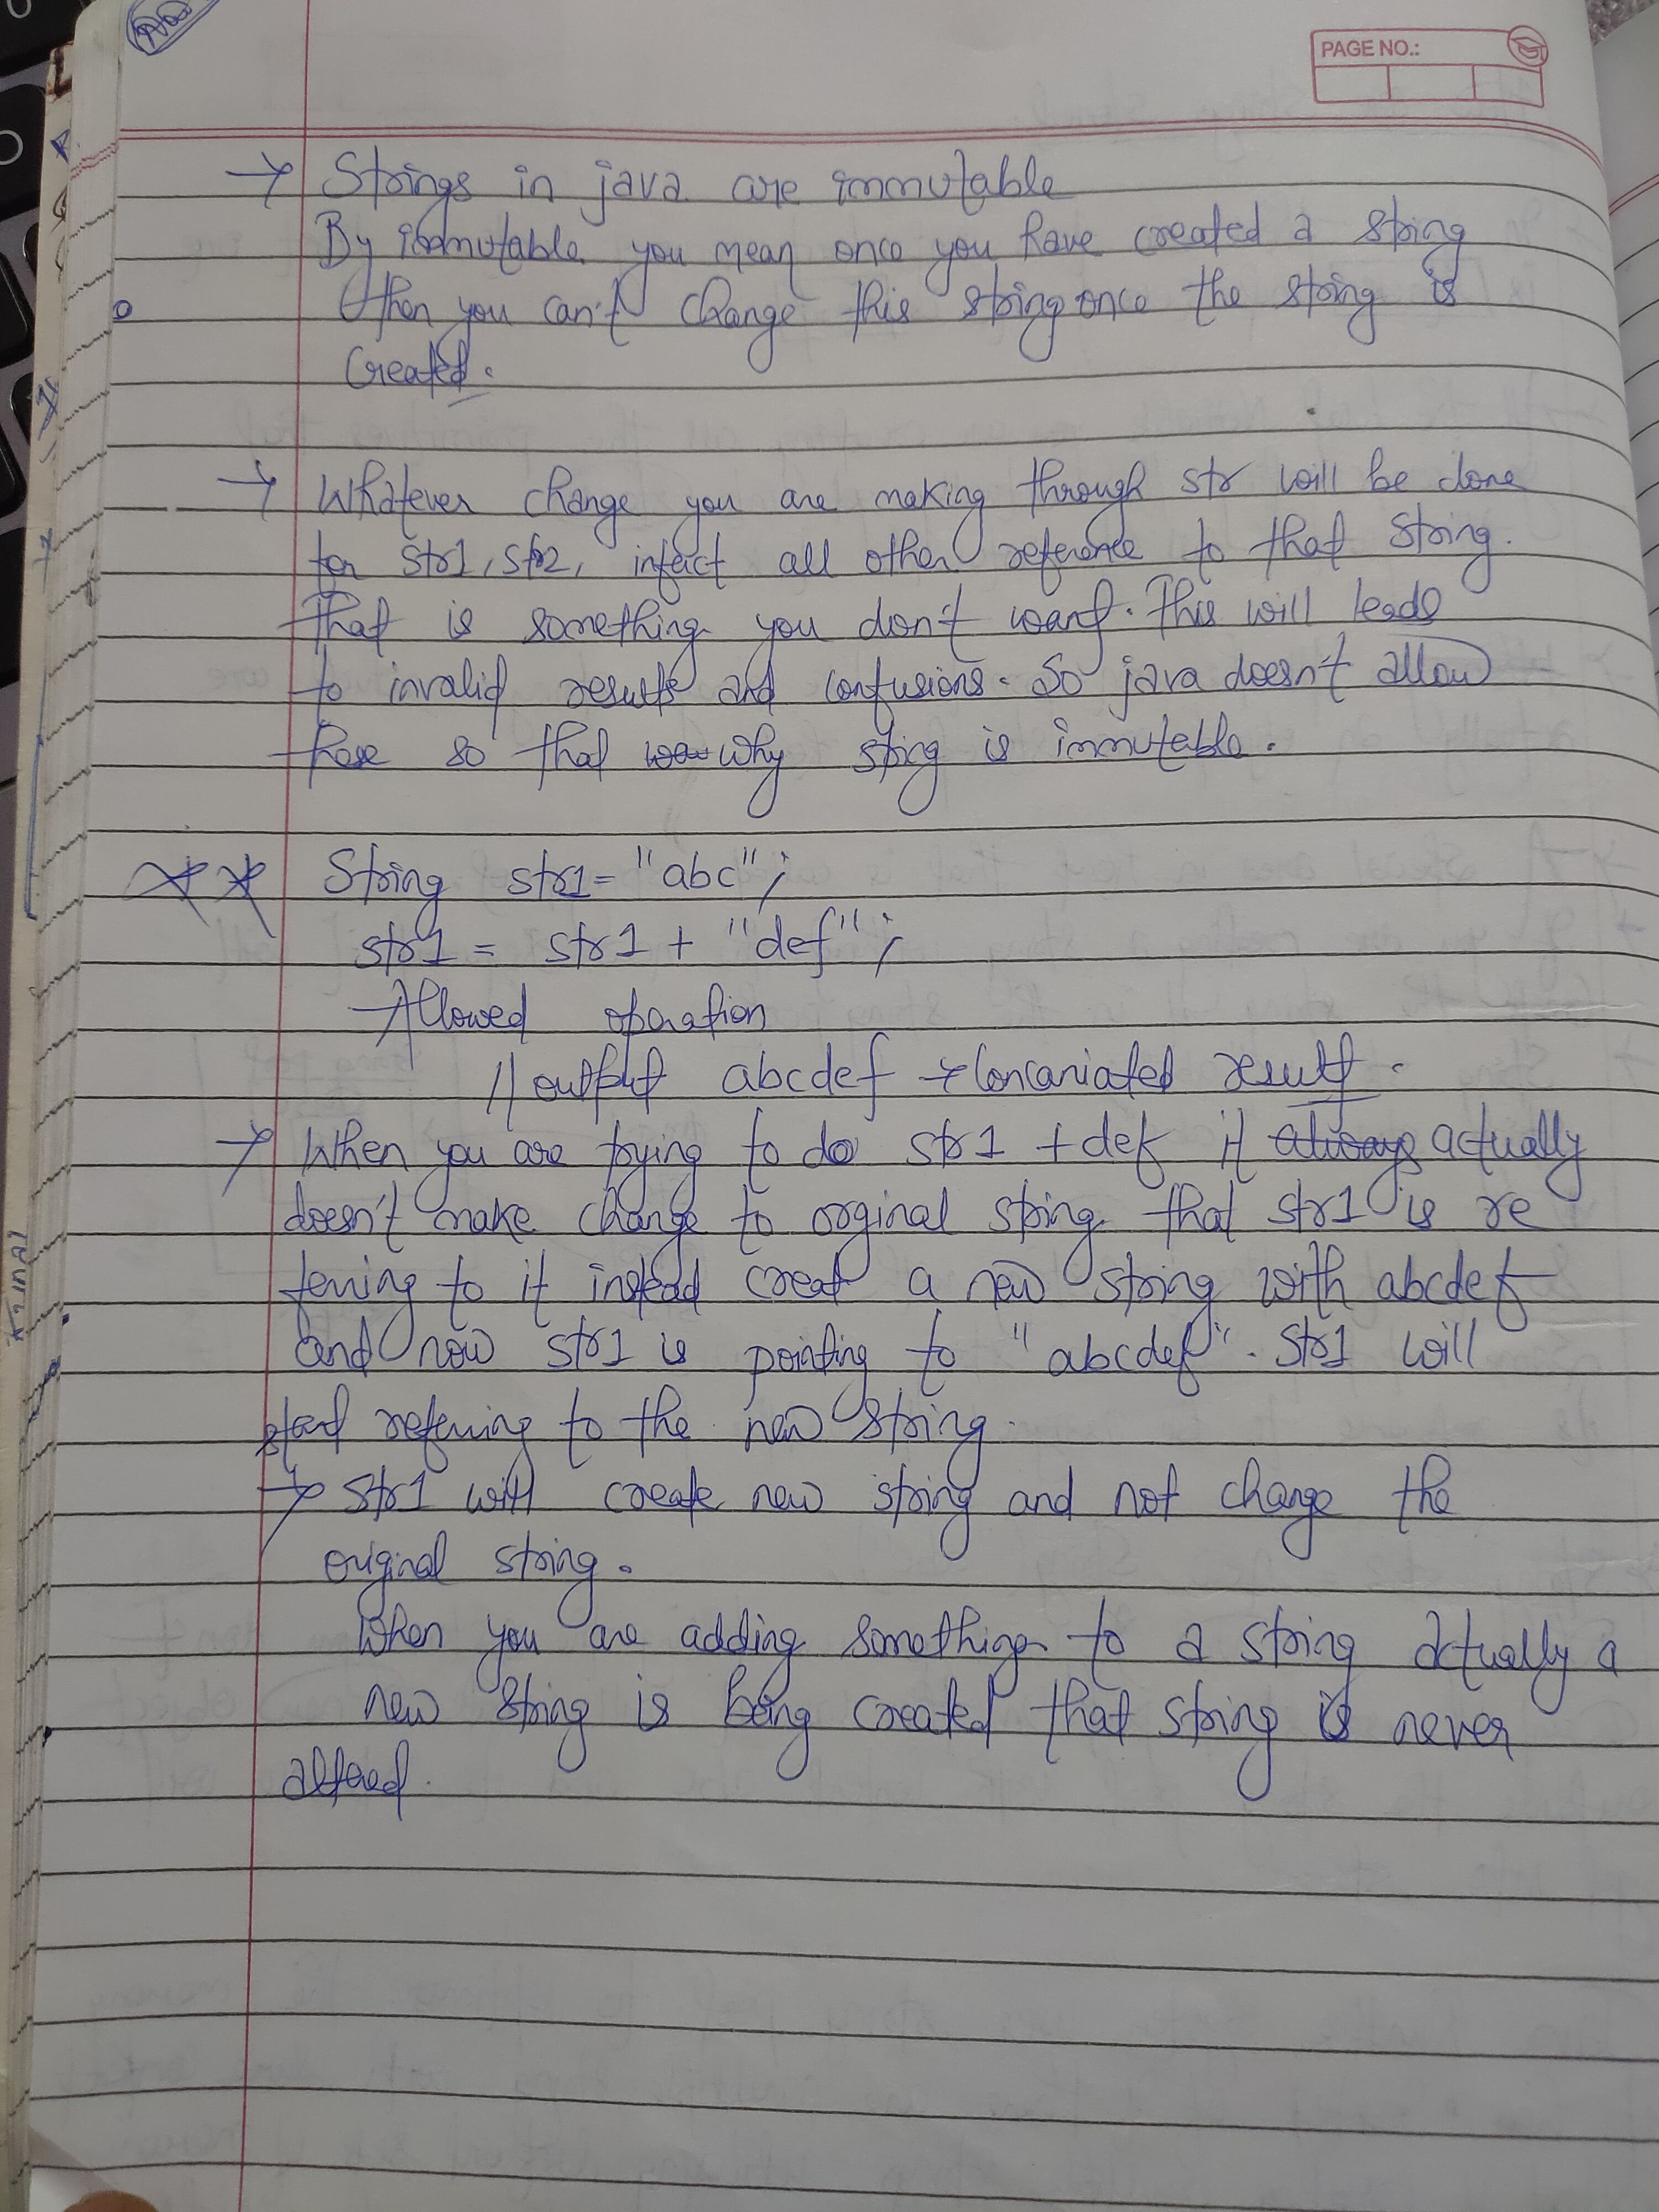 PAGE NO.:
→ Strings in java are immutable
By immutable you mean once you have created a string
then you can't change this string once the string is
Created.
→ Whatever change you are making through str will be done
for str1, str2, infact all other reference to that string.
That is something you don't want. This will leads
to invalid results and confusions. So java doesn't allow
these so that why sting is immutable.
** String str1= "abc";
str1 = str1 + "def";
→ Allowed operation
// output abcdef → Concaniated result.
→ When you are trying to do str1 + def it always actually
doesn't make change to orginal string that str1 is re
ferring to it instead creat a new string with abcdef
and now str1 is pointing to "abcdef". Str1 will
start referring to the new string.
→ Str1 will create new string and not change the
original string.
When you are adding something to a string actually a
new string is being created that string is never
altered.